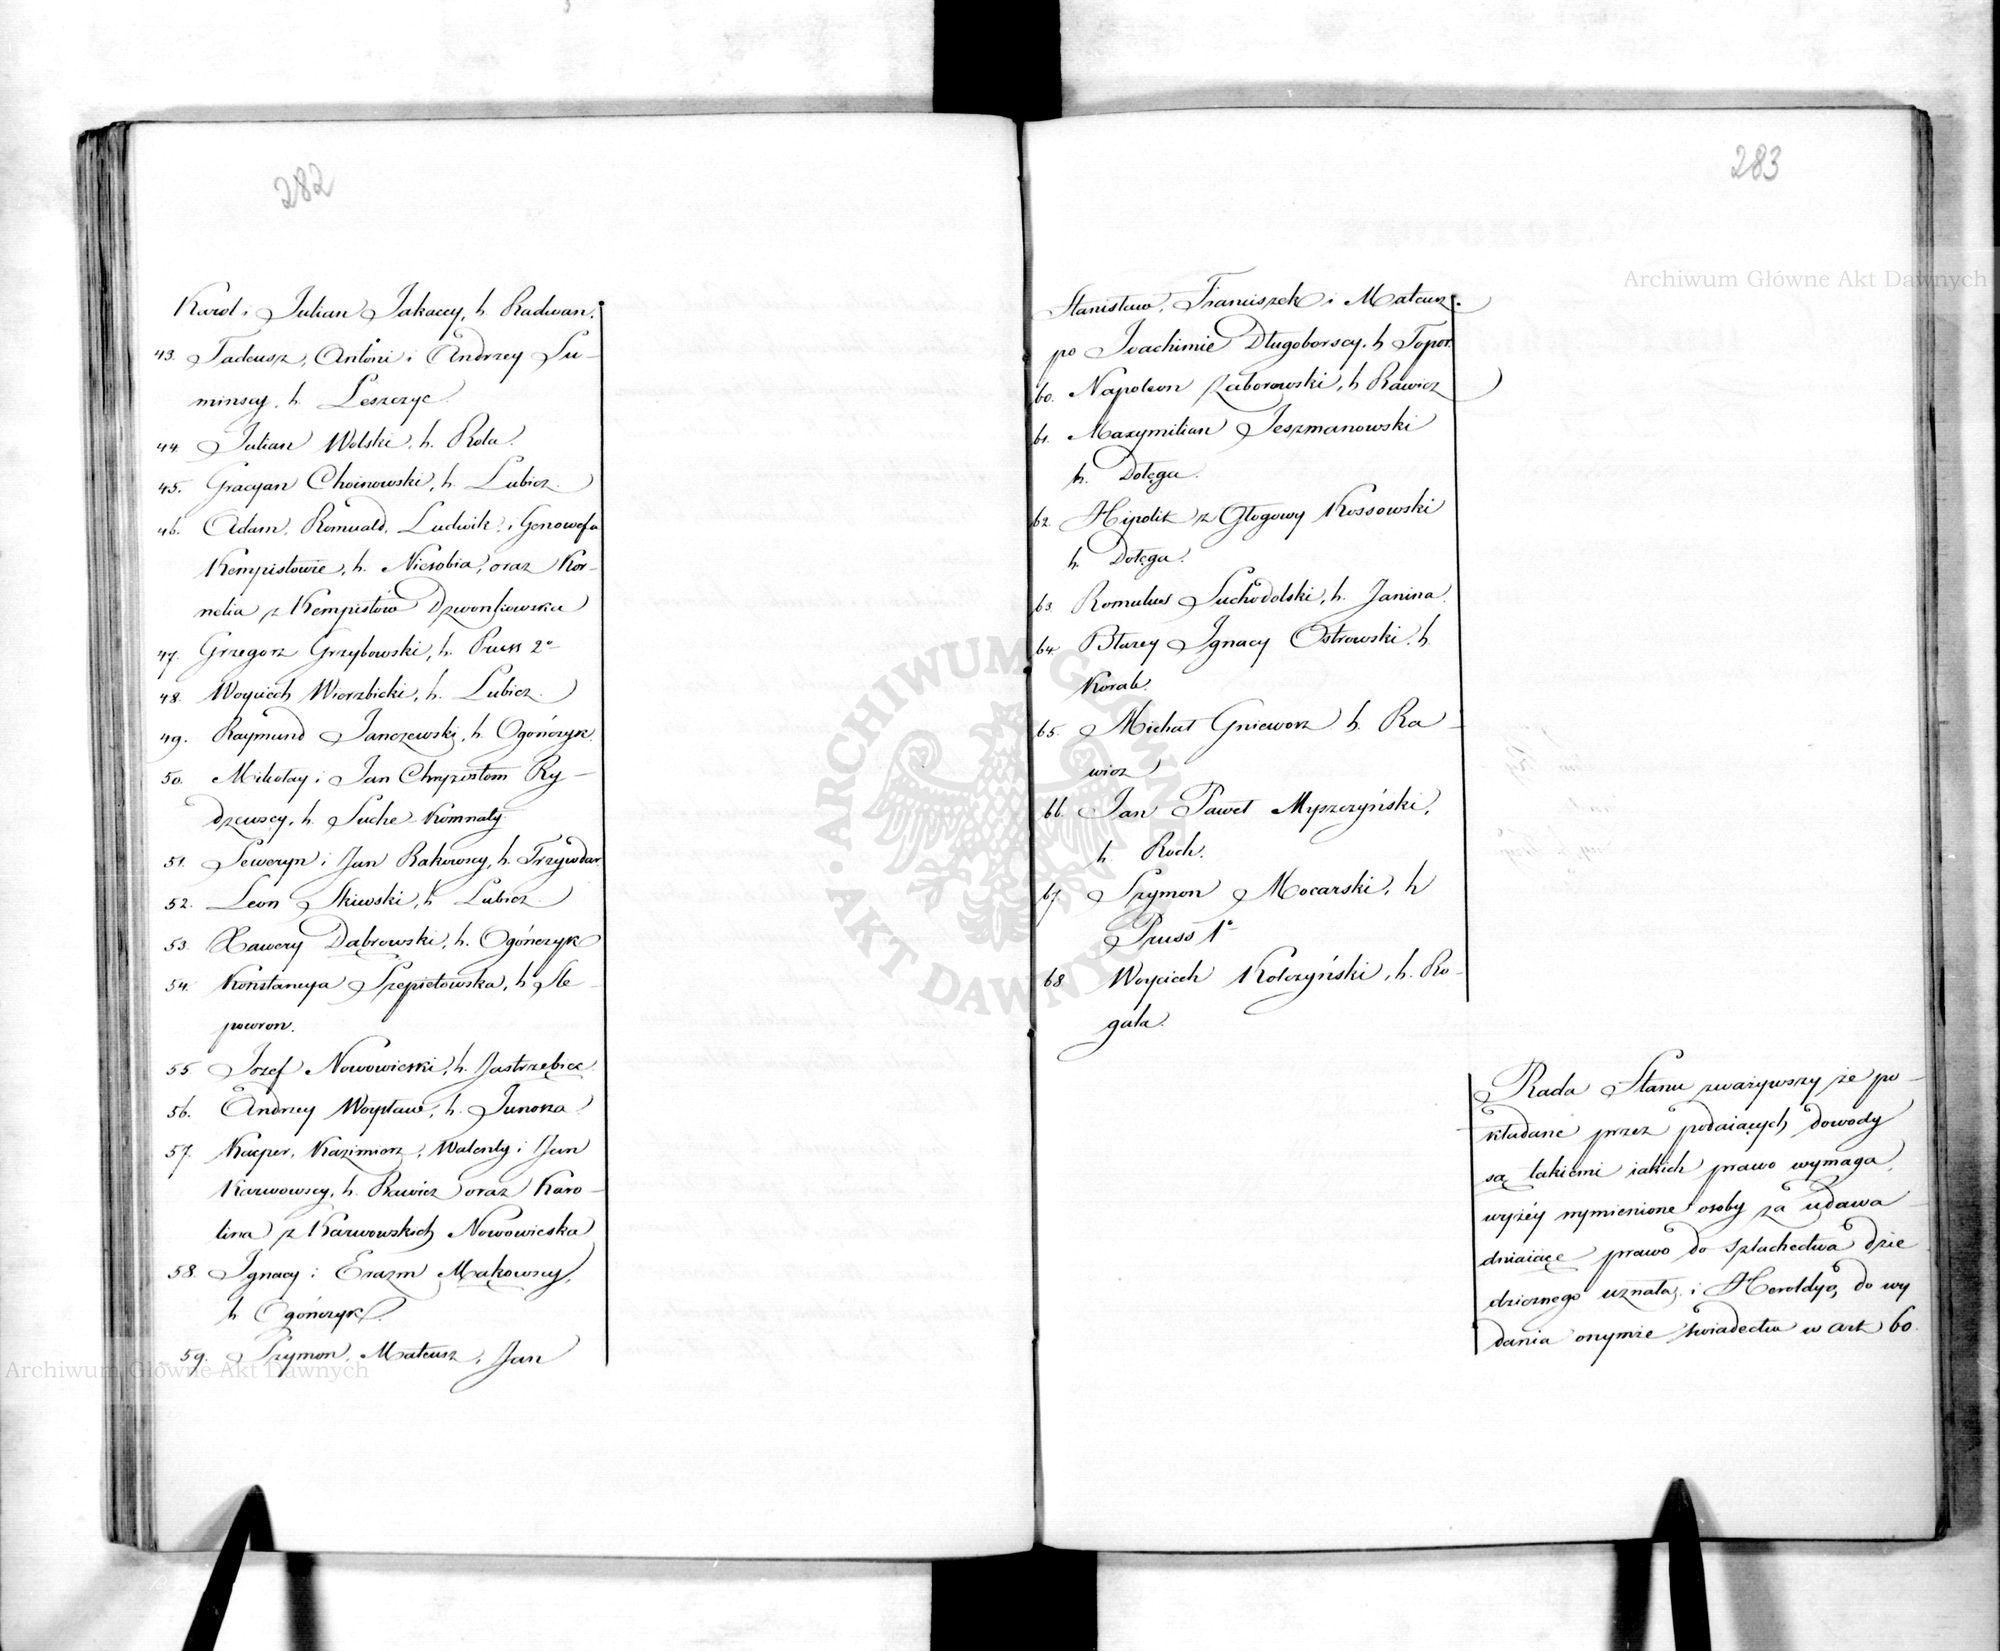 282
Karol i Julian Jakaccy, h. Radwan.
43. Tadeusz, Antoni i Andrzey Su-
minscy, h. Leszczyc.
44. Julian Wolski, h. Rola.
45. Gracyan Choinowski, h. Lubicz.
46. Adam, Romuald, Ludwik i Genowefa
Kempistowie, h. Niesobia, oraz Kor-
nelia z Kempistów Dzwonkowska
47. Grzegorz Grzybowski, h. Puss 2º
48. Woyciech Wierzbicki, h. Lubicz.
49. Raymund Janczewski, h. Ogończyk.
50. Mikołay i Jan Chryzostom Ry-
dzewscy, h. Suche-Komnaty.
51. Seweryn i Jan Rakowscy, h. Trzywdar.
52. Leon Skiwski, h. Lubicz.
53. Xawery Dąbrowski, h. Ogończyk
54. Konstancya Szepietowska, h. Śle-
powron.
55. Jozef Nowowieski, h. Jastrzębiec.
56. Andrzey Woysław, h. Junosza.
57. Kacper, Kazimierz, Walenty i Jan
Karwowscy, h. Rawicz oraz Karo-
lina z Karwowskich Nowowieska
58. Ignacy i Erazm Makowscy,
h. Ogończyk.
59. Szymon, Mateusz, Jan
283
Stanisław, Franciszek i Mateusz.
po Joachimie Długoborscy, h Topor.
60. Napoleon Zaborowski, h Rawicz
61. Maxymilian Jeszmanowski
h. Dołęga.
62. Hipolit z Głogowy Kossowski
h. Dołęga.
63. Romulus Suchodolski, h. Janina.
64. Błażey Ignacy Ostrowski, h.
Korab.
65. Michał Gniewosz h. Ra-
wicz
66. Jan Paweł Myszczyński,
h. Roch.
67. Szymon Mocarski, h
Pruss 1º
68. Woyciech Kolczyński, h. Ro-
gala.
Rada Stanu zważywszy że po-
kładane przez podaiących dowody
są takiemi iakich prawo wymaga,
wyżéy wymienione osoby za udawa-
dniaiące prawo do szlachectwa dzie
dzicznego uznała, i Heroldyę, do wy
dania onymże świadectw w art 60.
ARCHIWUM GŁÓWNE AKT DAWNYCH
Archiwum Główne Akt Dawnych
Archiwum Główne Akt Dawnych